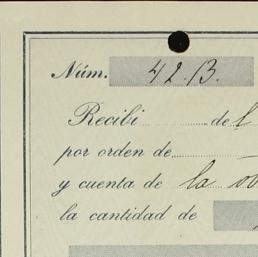 Núm. 42.B.
Recibí de l
por orden de
y cuenta de la
la cantidad de